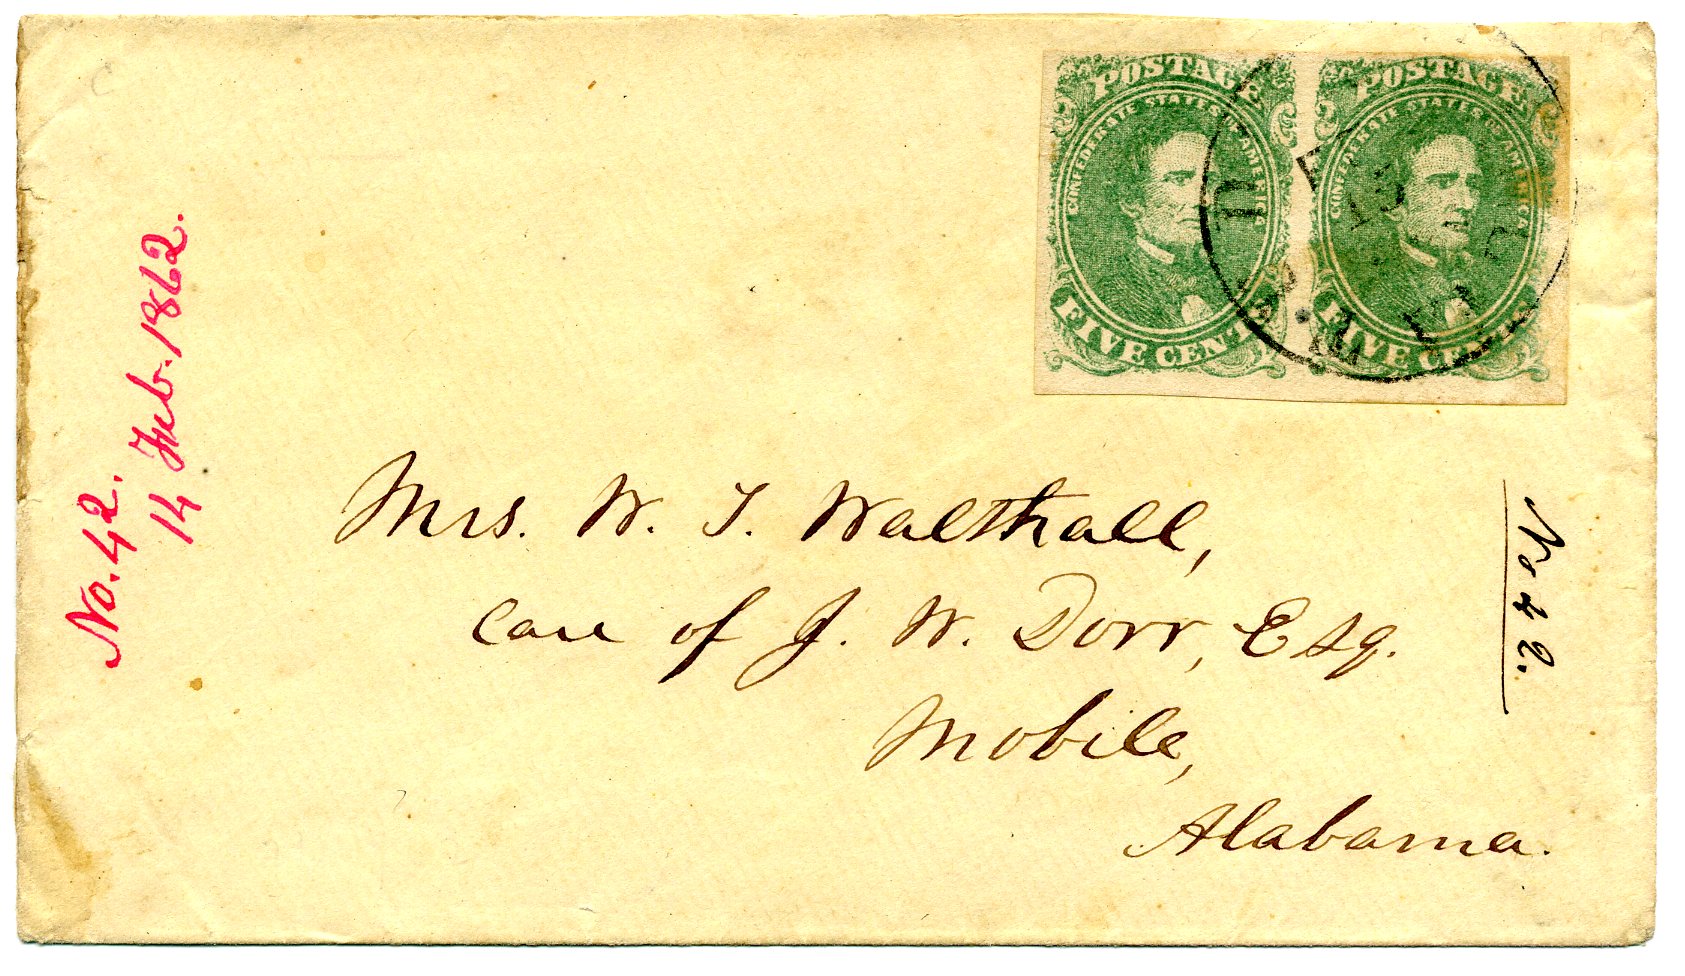 POSTAGE POSTAGE
CONFEDERATE STATES OF AMERICA CONFEDERATE STATES OF AMERICA
FIVE CENTS FIVE CENTS
No. 42.
14 Feb. 1862.
Mrs. W. T. Walthall,
Care of J. W. Dorr, Esq.
Mobile,
Alabama.
No 42.